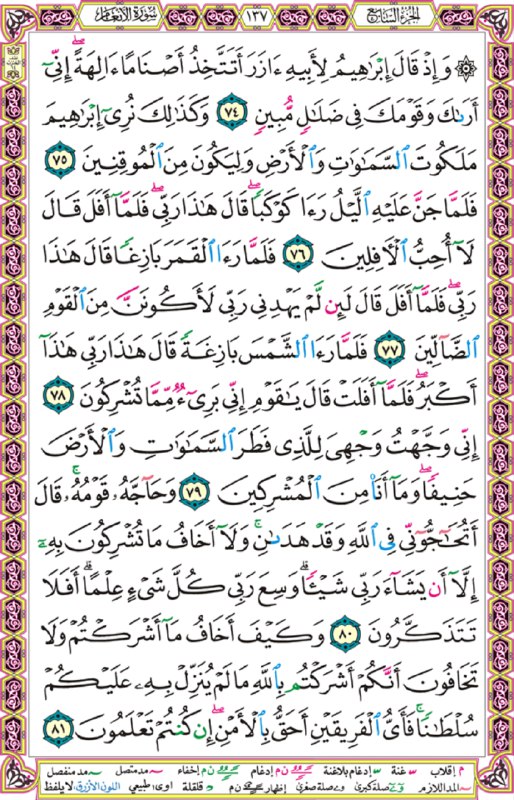 الجزء السابع
١٣٧
سورة الأنعام
۞ وَإِذْ قَالَ إِبْرَاهِيمُ لِأَبِيهِ ءَازَرَ أَتَتَّخِذُ أَصْنَامًا ءَالِهَةً ۖ إِنِّىٓ
أَرَىٰكَ وَقَوْمَكَ فِى ضَلَٰلٍ مُّبِينٍ ٧٤ وَكَذَٰلِكَ نُرِىٓ إِبْرَٰهِيمَ
مَلَكُوتَ السَّمَٰوَٰتِ وَالْأَرْضِ وَلِيَكُونَ مِنَ الْمُوقِنِينَ ٧٥
فَلَمَّا جَنَّ عَلَيْهِ الَّيْلُ رَءَا كَوْكَبًا ۖ قَالَ هَٰذَا رَبِّى ۖ فَلَمَّآ أَفَلَ قَالَ
لَآ أُحِبُّ الْأَفِلِينَ ٧٦ فَلَمَّا رَءَا الْقَمَرَ بَازِغًا قَالَ هَٰذَا
رَبِّى ۖ فَلَمَّآ أَفَلَ قَالَ لَئِن لَّمْ يَهْدِنِى رَبِّى لَأَكُونَنَّ مِنَ الْقَوْمِ
الضَّآلِّينَ ٧٧ فَلَمَّا رَءَا الشَّمْسَ بَازِغَةً قَالَ هَٰذَا رَبِّى هَٰذَآ
أَكْبَرُ ۖ فَلَمَّآ أَفَلَتْ قَالَ يَٰقَوْمِ إِنِّى بَرِىٓءٌ مِّمَّا تُشْرِكُونَ ٧٨
إِنِّى وَجَّهْتُ وَجْهِىَ لِلَّذِى فَطَرَ السَّمَٰوَٰتِ وَالْأَرْضَ
حَنِيفًا ۖ وَمَآ أَنَا۠ مِنَ الْمُشْرِكِينَ ٧٩ وَحَآجَّهُۥ قَوْمُهُۥ ۚ قَالَ
أَتُحَٰٓجُّوٓنِّى فِى اللَّهِ وَقَدْ هَدَىٰنِ ۚ وَلَآ أَخَافُ مَا تُشْرِكُونَ بِهِۦٓ
إِلَّآ أَن يَشَآءَ رَبِّى شَيْـًٔا ۗ وَسِعَ رَبِّى كُلَّ شَىْءٍ عِلْمًا ۗ أَفَلَا
تَتَذَكَّرُونَ ٨٠ وَكَيْفَ أَخَافُ مَآ أَشْرَكْتُمْ وَلَا
تَخَافُونَ أَنَّكُمْ أَشْرَكْتُم بِاللَّهِ مَا لَمْ يُنَزِّلْ بِهِۦ عَلَيْكُمْ
سُلْطَٰنًا ۚ فَأَىُّ الْفَرِيقَيْنِ أَحَقُّ بِالْأَمْنِ ۖ إِن كُنتُمْ تَعْلَمُونَ ٨١
م إقلاب غنة إدغام بلاغنة ن م إدغام ن م إخفاء مد متصل مد منفصل
المد اللازم صلة كبرى صلة صغرى إظهار ن م قلقلة اوى: طبيعي اللون الأزرق: لا يلفظ